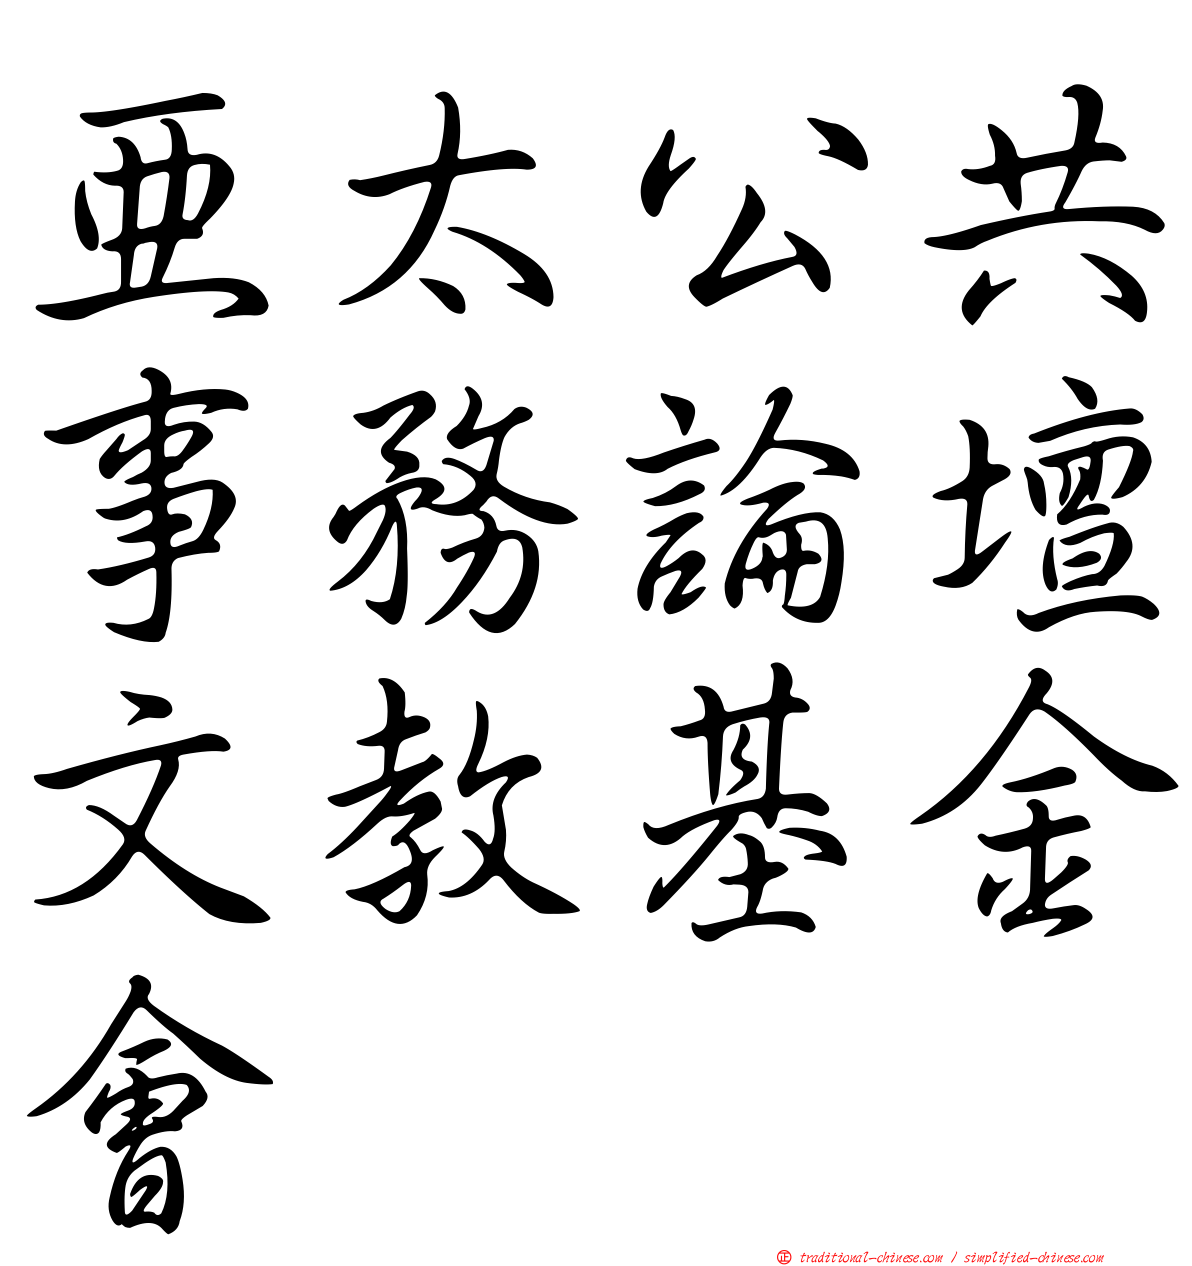 亞太公共
事務論壇
文教基金
會
㊣ traditional-chinese.com / simplified-chinese.com